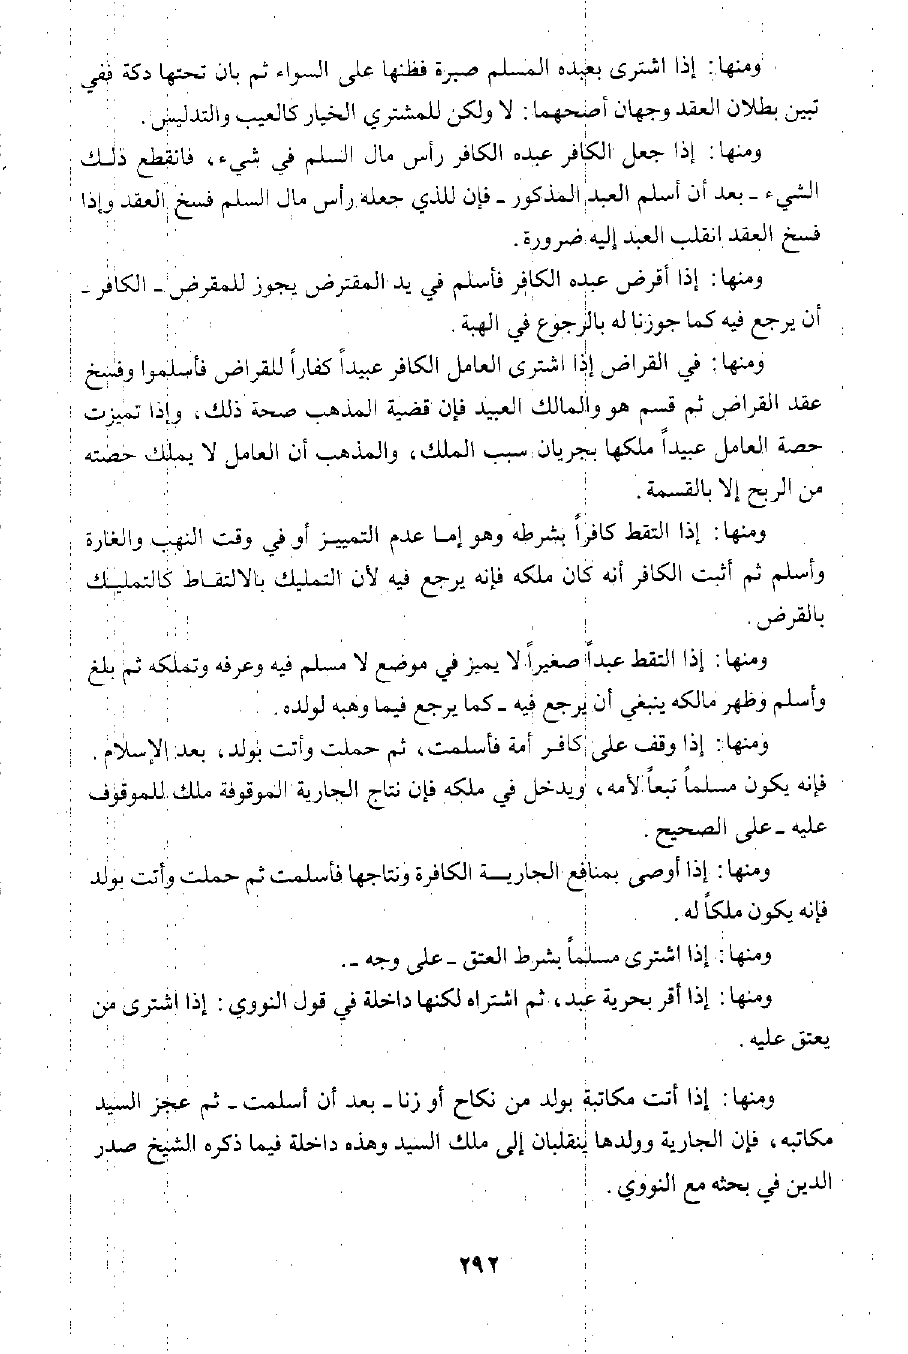 ومنها: إذا اشترى بعبده المسلم صبرة فظنها على السواء ثم بان تحتها دكة ففي
تبين بطلان العقد وجهان أصحهما: لا ولكن للمشتري الخيار كالعيب والتدليس.
ومنها: إذا جعل الكافر عبده الكافر رأس مال السلم في شيء، فانقطع ذلك
الشيء ـ بعد أن أسلم العبد المذكور ـ فإن للذي جعله رأس مال السلم فسخ العقد وإذا
فسخ العقد انقلب العبد إليه ضرورة.
ومنها: إذا أقرض عبده الكافر فأسلم في يد المقترض يجوز للمقرض ـ الكافر ـ
أن يرجع فيه كما جوزنا له بالرجوع في الهبة.
ومنها: في القراض إذا اشترى العامل الكافر عبيداً كفاراً للقراض فأسلموا وفسخ
عقد القراض ثم قسم هو والمالك العبيد فإن قضية المذهب صحة ذلك، وإذا تميزت
حصة العامل عبيداً ملكها بجريان سبب الملك، والمذهب أن العامل لا يملك حصته
من الربح إلا بالقسمة.
ومنها: إذا التقط كافراً بشرطه وهو إما عدم التمييز أو في وقت النهب والغارة
وأسلم ثم أثبت الكافر أنه كان ملكه فإنه يرجع فيه لأن التمليك بالالتقاط كالتمليك
بالقرض.
ومنها: إذا التقط عبداً صغيراً لا يميز في موضع لا مسلم فيه وعرفه وتملكه ثم بلغ
وأسلم وظهر مالكه ينبغي أن يرجع فيه ـ كما يرجع فيما وهبه لولده.
ومنها: إذا وقف على كافر أمة فأسلمت، ثم حملت وأتت بولد، بعد الإسلام.
فإنه يكون مسلماً تبعاً لأمه، ويدخل في ملكه فإن نتاج الجارية الموقوفة ملك للموقوف
عليه ـ على الصحيح.
ومنها: إذا أوصى بمنافع الجارية الكافرة ونتاجها فأسلمت ثم حملت وأتت بولد
فإنه يكون ملكاً له.
ومنها: إذا اشترى مسلماً بشرط العتق ـ على وجه ـ.
ومنها: إذا أقر بحرية عبد، ثم اشتراه لكنها داخلة في قول النووي: إذا اشترى من
يعتق عليه.
ومنها: إذا أتت مكاتبة بولد من نكاح أو زنا ـ بعد أن أسلمت ـ ثم عجز السيد
مكاتبه، فإن الجارية وولدها ينقلبان إلى ملك السيد وهذه داخلة فيما ذكره الشيخ صدر
الدين في بحثه مع النووي.
٢٩٢